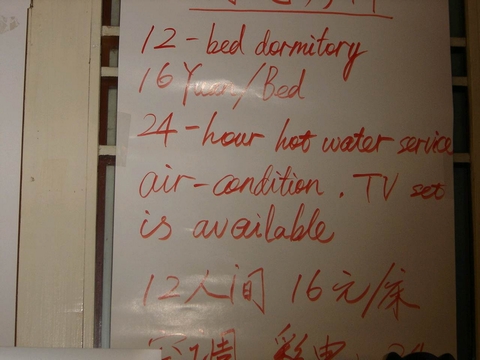 12-bed dormitory
16 Yuan/Bed
24-hour hot water service
air-condition. TV set
is available
12人间 16元/床
空调 彩电、24